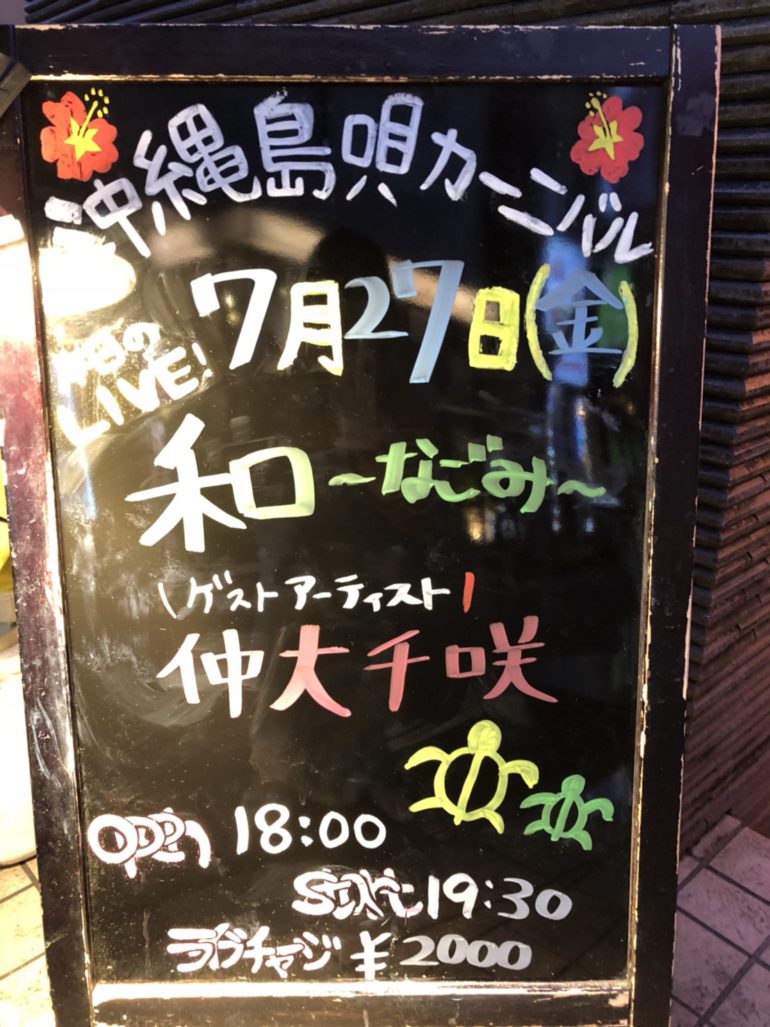 沖縄島唄カーニバル
7月27日(金)
本日の
LIVE!
和~なごみ~
\ゲストアーティスト/
仲大千咲
OPEN 18:00
START 19:30
ライブチャージ ¥2000